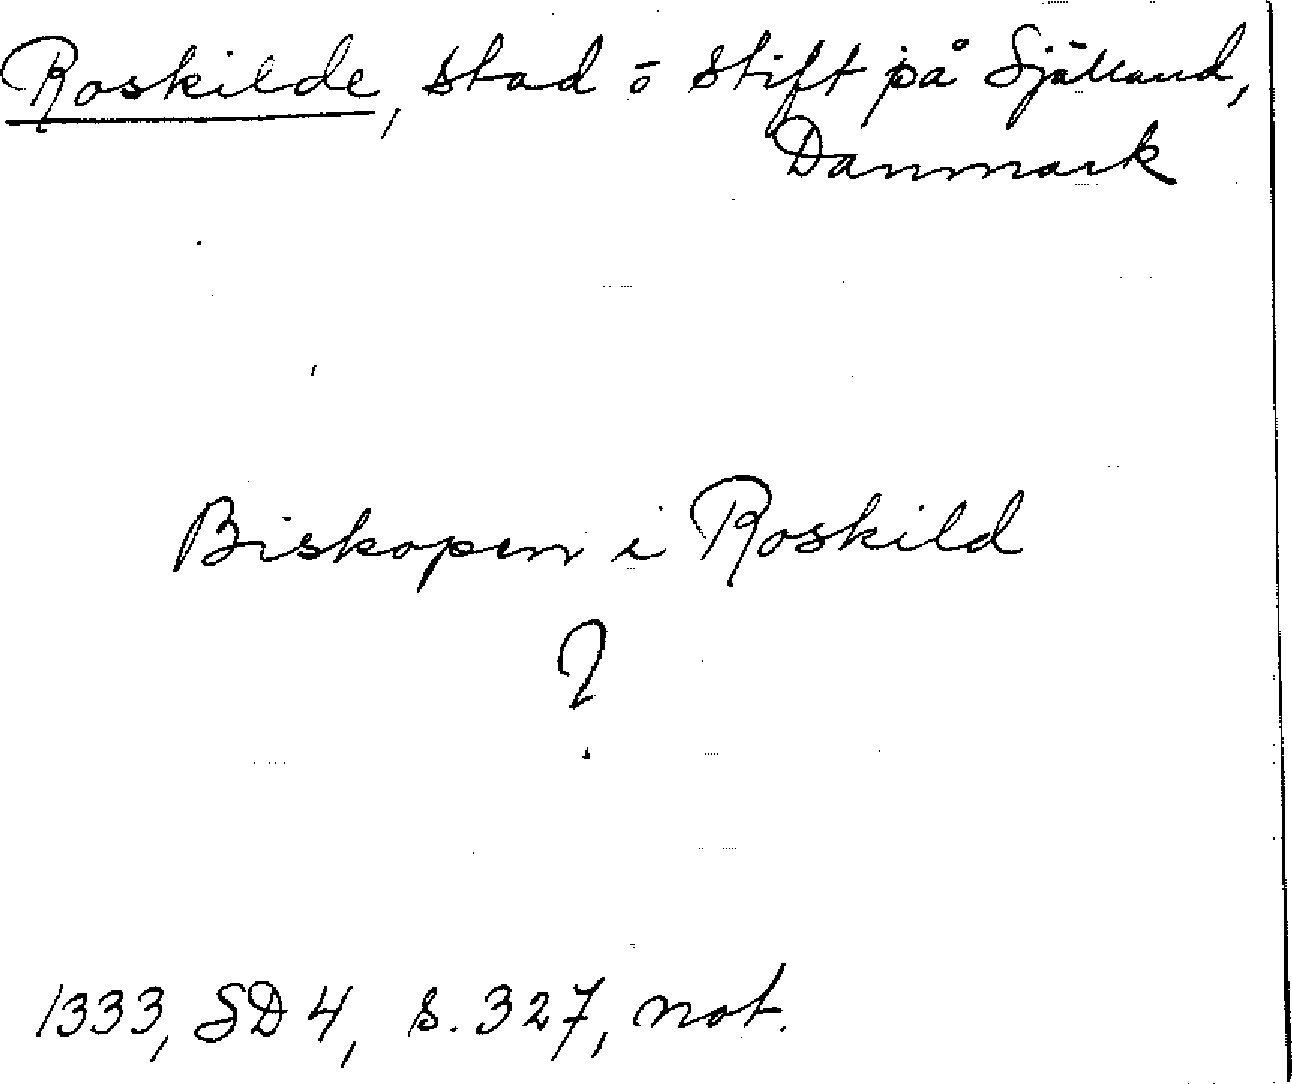 Roskilde, stad o stift på Själland,
Danmark
Biskopen i Roskild
?
1333, SD 4, s. 327, not.